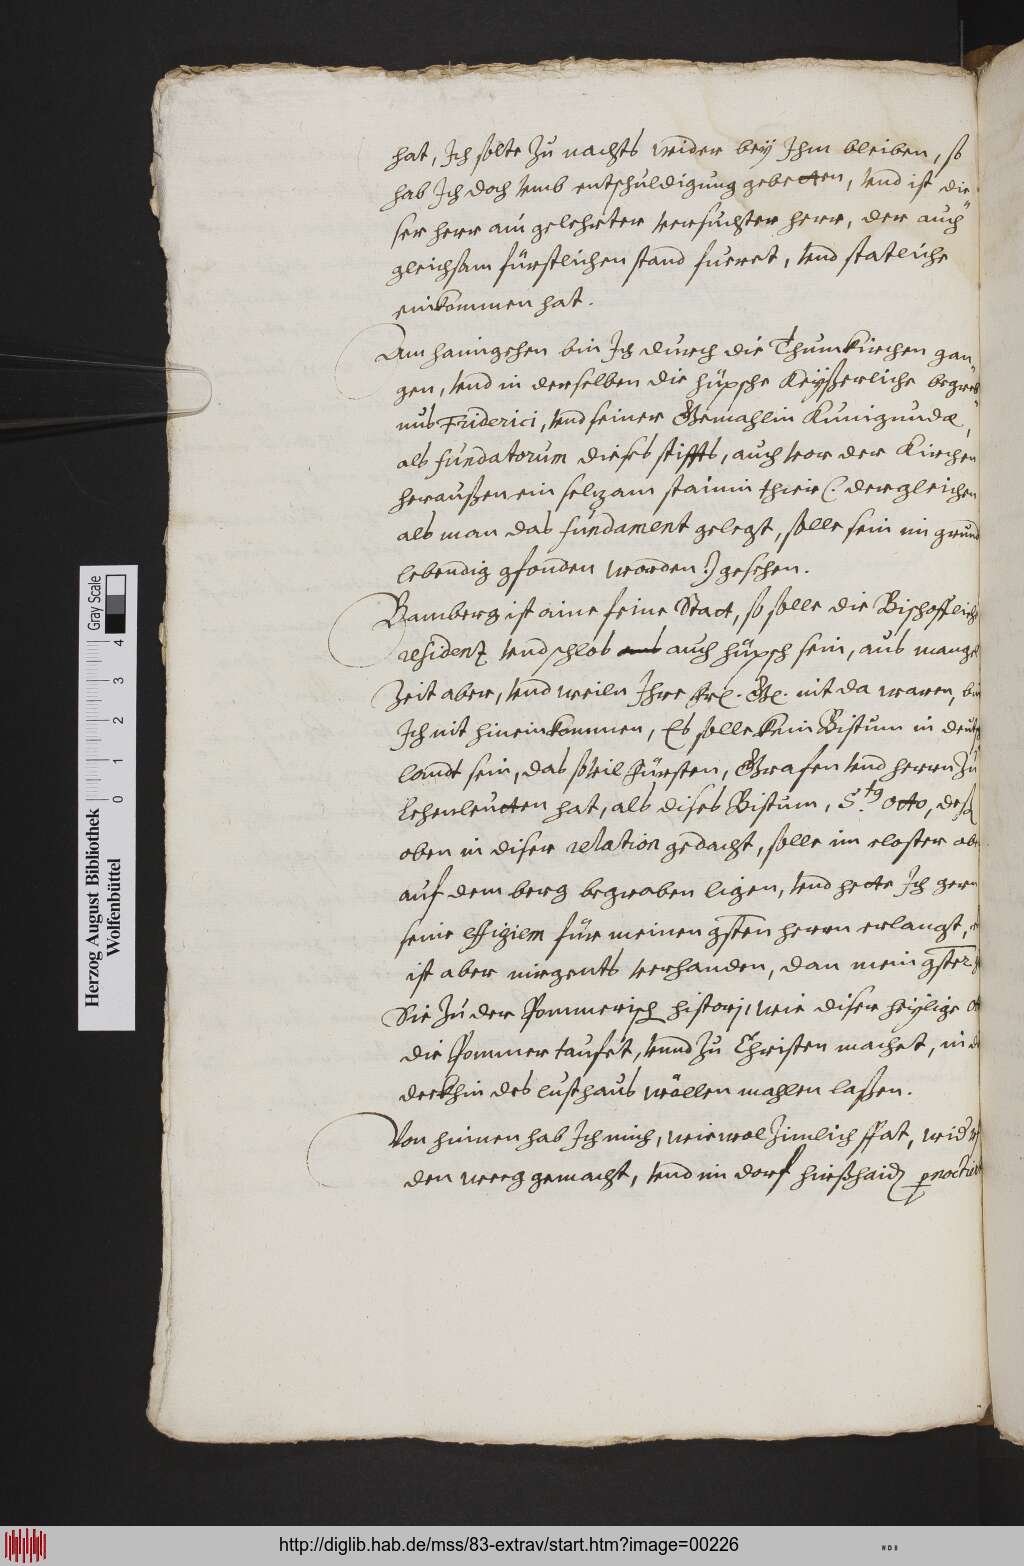 hat, Ich solte zu nachts wider bey Ihm bleiben, so
hab Ich doch umb entschuldigung gebetten, und ist die„
ser herr ain gelehrter versuchter herr, der auch
gleichsam fürstlichen stand fueret, und statliche
einkommen hat.
Am haimgehen bin Ich durch die Thumkirchen gan„
gen, und in derselben die hüpsche Keyßerliche begreb„
nus Friderici, und seiner Gemahlin Kunigundæ,
als fundatorum dieses stiffts, auch vor der Kirchen
heraußen ein selzam stainin thier (: dergleichen
als man das fundament gelegt, solle sein im grund
lebendig gfonden worden :) gesehen.
Bamberg ist aine feine Statt, so solle die Bischofflich
residenz und schlos auch hüpsch sein, aus mangel
Zeit aber, und weiln Ihre frl. Gl. nit da waren, bin
Ich nit hineinkommen, Es solle kein Bistum in deutsch
landt sein, das sovil Fürsten, Grafen und herrn zu
Lehenleutten hat, als dises Bistum, S.tg Otto, deß
oben in diser relation gedacht, solle im closter oben
auf dem berg begraben ligen, und hette Ich gern
seine effigiem für meinen gsten herrn erlangt,
ist aber nirgents verhanden, dan mein gster
Sie zu der Pommerisch histori, wie diser heylige Otto
die Pommer taufet, unnd zu Christen machet, in
deckhin des lusthaus wöllen mahlen laßen.
Von hinnen hab Ich mich, wiewol zimlich spat, wider
den weeg gemacht, und im dorf hirßhaid pernoctiert
Herzog August Bibliothek
Wolfenbüttel
0 1 2 3 4
Gray Scale
http://diglib.hab.de/mss/83-extrav/start.htm?image=00226
WDB